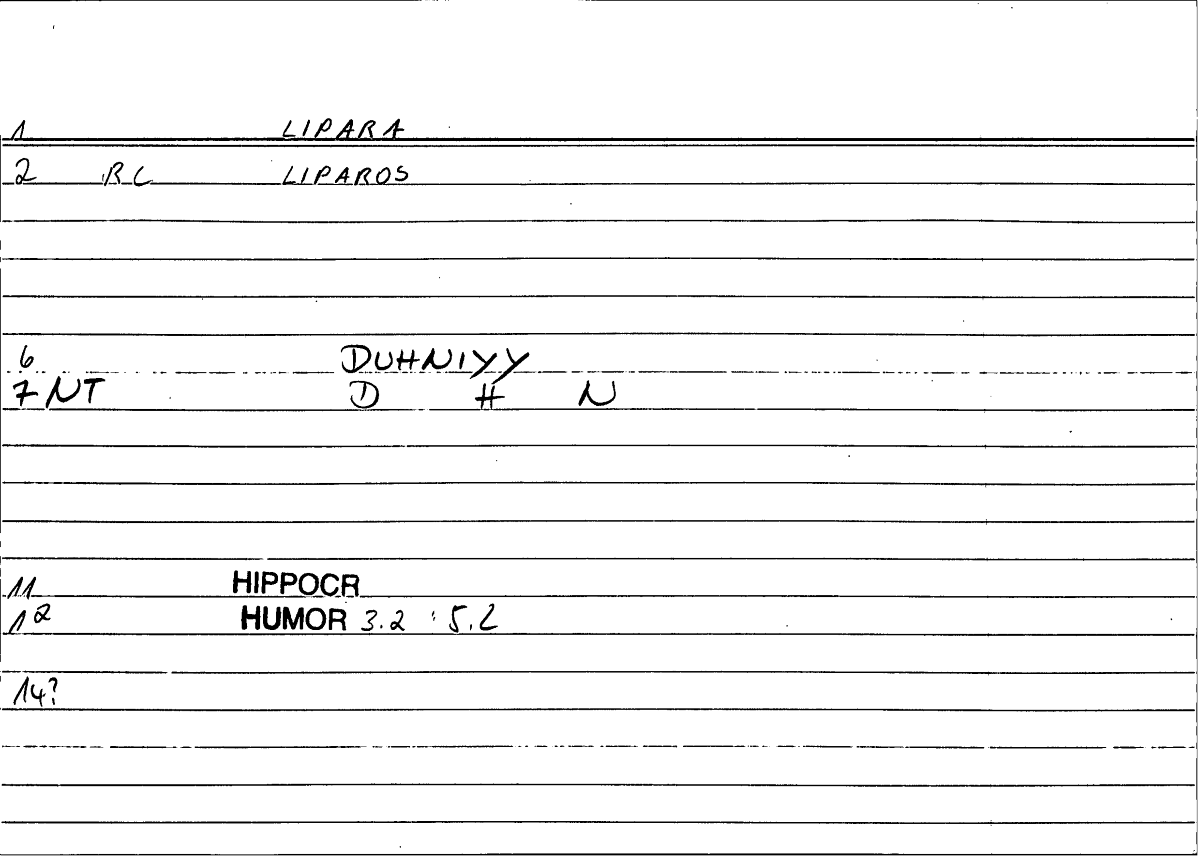 1 LIPARA
2 RC LIPAROS
6 DUHNIYY
7 NT D H N
11 HIPPOCR
12 HUMOR 3.2 : 5.2
14?